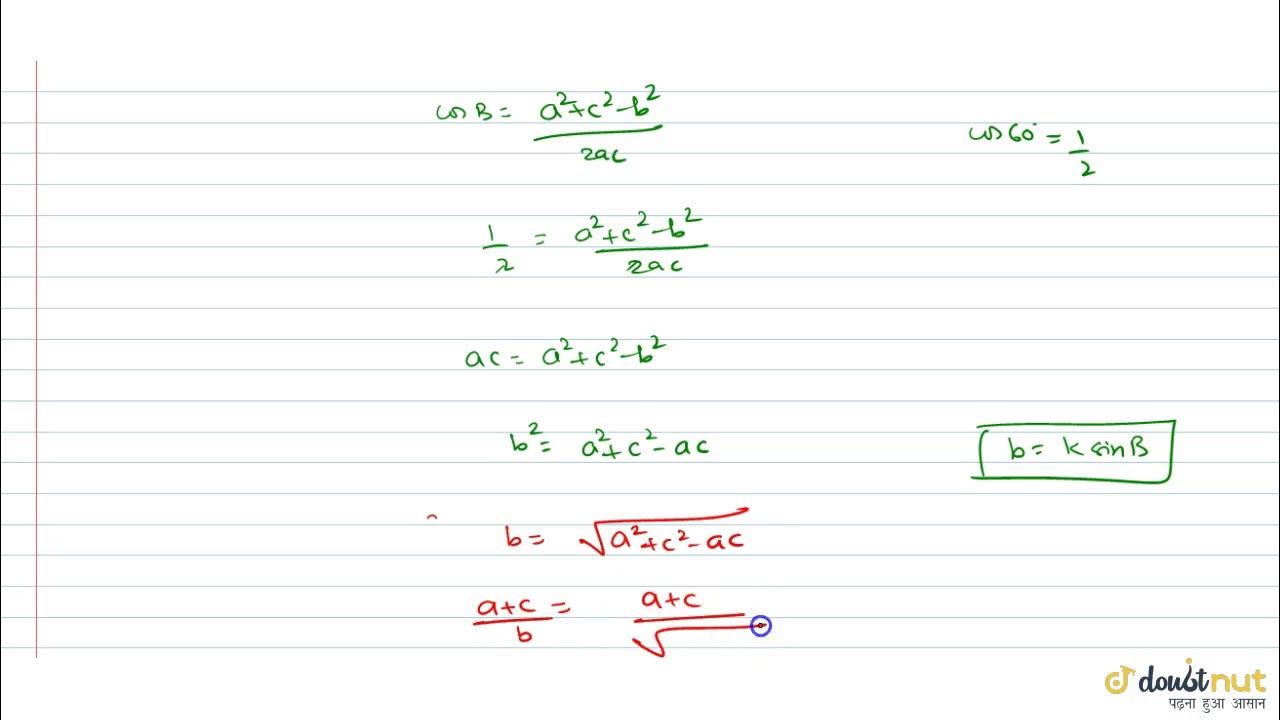 cos B = a²+c²-b² / 2ac
cos 60° = 1/2
1/2 = a²+c²-b² / 2ac
ac = a²+c²-b²
b² = a²+c²-ac
b = k sin B
b = √a²+c²-ac
a+c / b = a+c / √
doubtnut
पढ़ना हुआ आसान